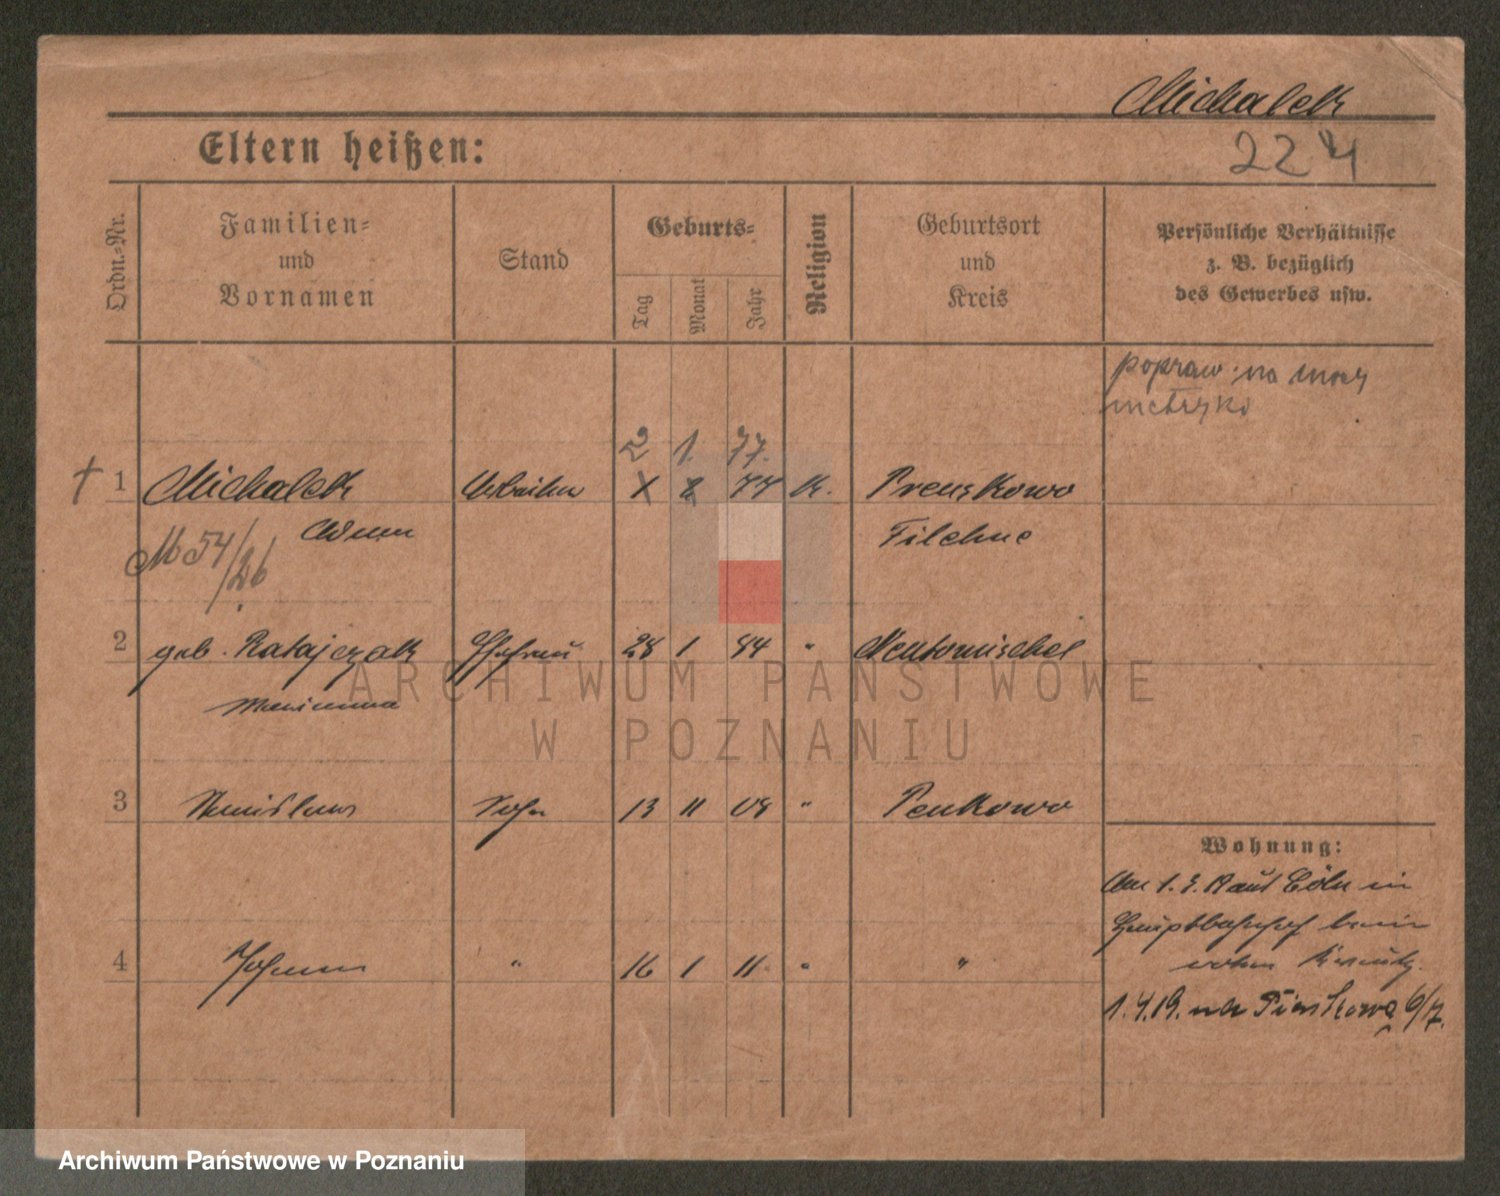 Michalek
Eltern heißen:
224
Ordn.-Nr.
Familien-
und
Vornamen
Stand
Geburts-
Tag
Monat
Jahr
Religion
Geburtsort
und
Kreis
Persönliche Verhältnisse
z. B. bezüglich
des Gewerbes usw.
popraw. na mocy
metryki
2 1. 77.
† 1 Michalek Arbeiter X 8 74 K. Preuskowo
Adam Filehne
M 54/26
2 geb. Ratajczak Ehefrau 28 1 84 " Neutomischel
Marianna
3 Stanislaus Sohn 13 11 08 " Penkowo
Wohnung:
4 Johann " 16 1 11 " "
Cöln
Hauptbahnhof
1.4.19. 6/7.
ARCHIWUM PAŃSTWOWE
W POZNANIU
Archiwum Państwowe w Poznaniu